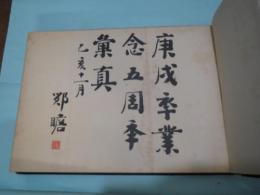 庚戌卒業
念五周年
彙真
乙亥十一月
鄭瞻